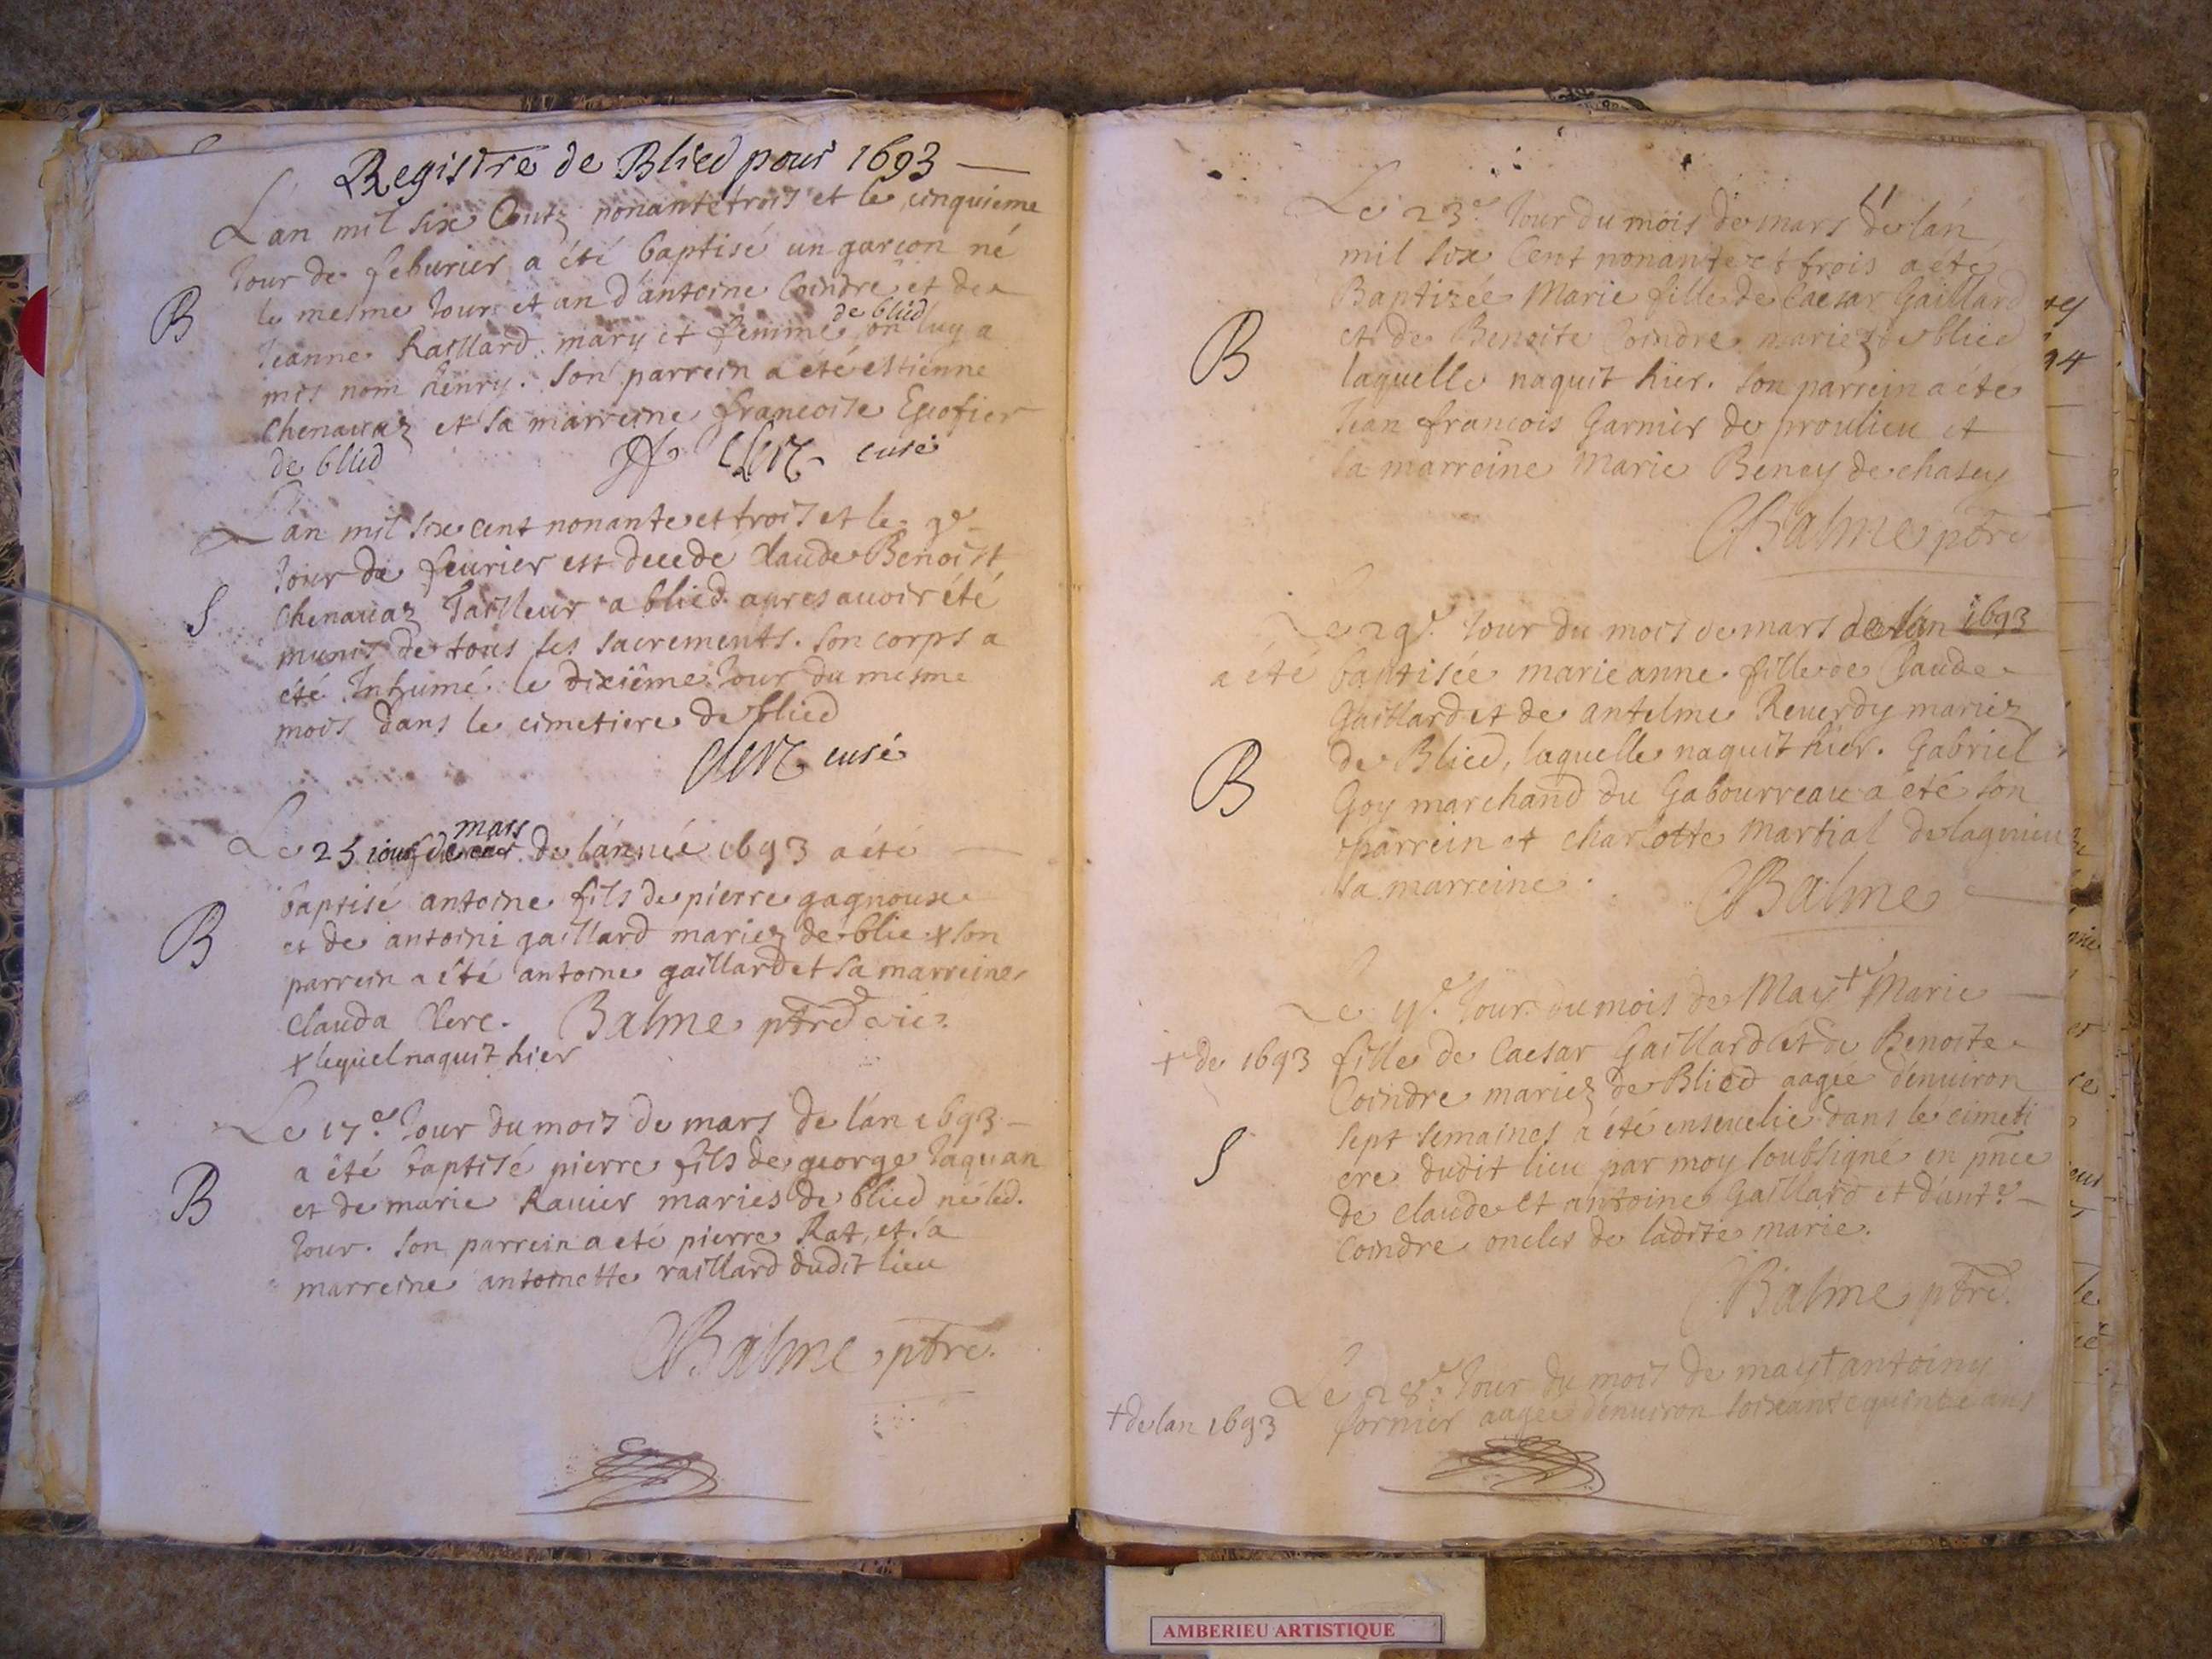 Registre de Blied pour 1693
Lan mil six Centz nonante trois et le cinquieme
Jour de feburier a été baptisé un garcon né
le mesme Jour et an d'antoine Coindre et de
Jeanne Raillard mary et femme de blied on luy a
mis nom henry. Son parrein a été estienne
Chenauaz et sa marreine francoise Escofier
de blied Clerc curé
B
Lan mil six cent nonante et trois et le 9e
Jour de feurier est decedé Claude Benoist
Chenauaz Tailleur a blied apres auoir été
munis de tous ses sacrements. Son corps a
été Inhumé le dixiême Jour du mesme
mois dans le cimetiere de blied
S
Clerc curé
Le 25 iour de mars de lánnée 1693 a été
baptisé antoine fils de pierre gagnoux
et de antoini gaillard mariez de blie + son
parrein a été antoine gaillard et sa marreine
Clauda Clerc. Balme ptre vic.
+ lequel naquit hier
B
Le 17e Jour du mois de mars de lán 1693
a été baptisé pierre fils de george Jaquan
et de marie Rauier mariés de blied né led.
Jour. Son parrein a eté pierre Rat, et sa
marreine antoinette raillard dudit lieu
B
Balme ptre.
11
Le 23e Jour du mois de mars de lán
mil six Cent nonante et trois a été
Baptizée Marie fille de Caesar Gaillard
et de Benoite Coindre mariez de blied
laquelle naquit hier. Son parrein a été
Jean francois Garnier de proulieu et
la marreine Marie Beney de chasey
B
Balme ptre
Le 29e Jour du mois de mars de lán 1693
a été baptisée marieanne fille de Claude
Gaillard et de antelme Reuerdy mariez
de Blied, laquelle naquit hier. Gabriel
Goy marchand du Gabourreau a été son
parrein et charlotte Martial de lagnieu
sa marreine.
B
Balme
Le 9e Jour du mois de May + Marie
+ de 1693 fille de Caesar Gaillard et de Benoite
Coindre mariez de Blied aagée dénuiron
sept semaines a été enseuelie dans le cimeti
ere dudit lieu par moy soubsigné en pnce
de claude et antoine Gaillard et d'ante
Coindre oncles de ladite marie.
S
Balme ptre.
Le 28e Jour du mois de may + antoiny
+ de lan 1693 fornier aagée dénuiron soixante quinze ans
AMBERIEU ARTISTIQUE